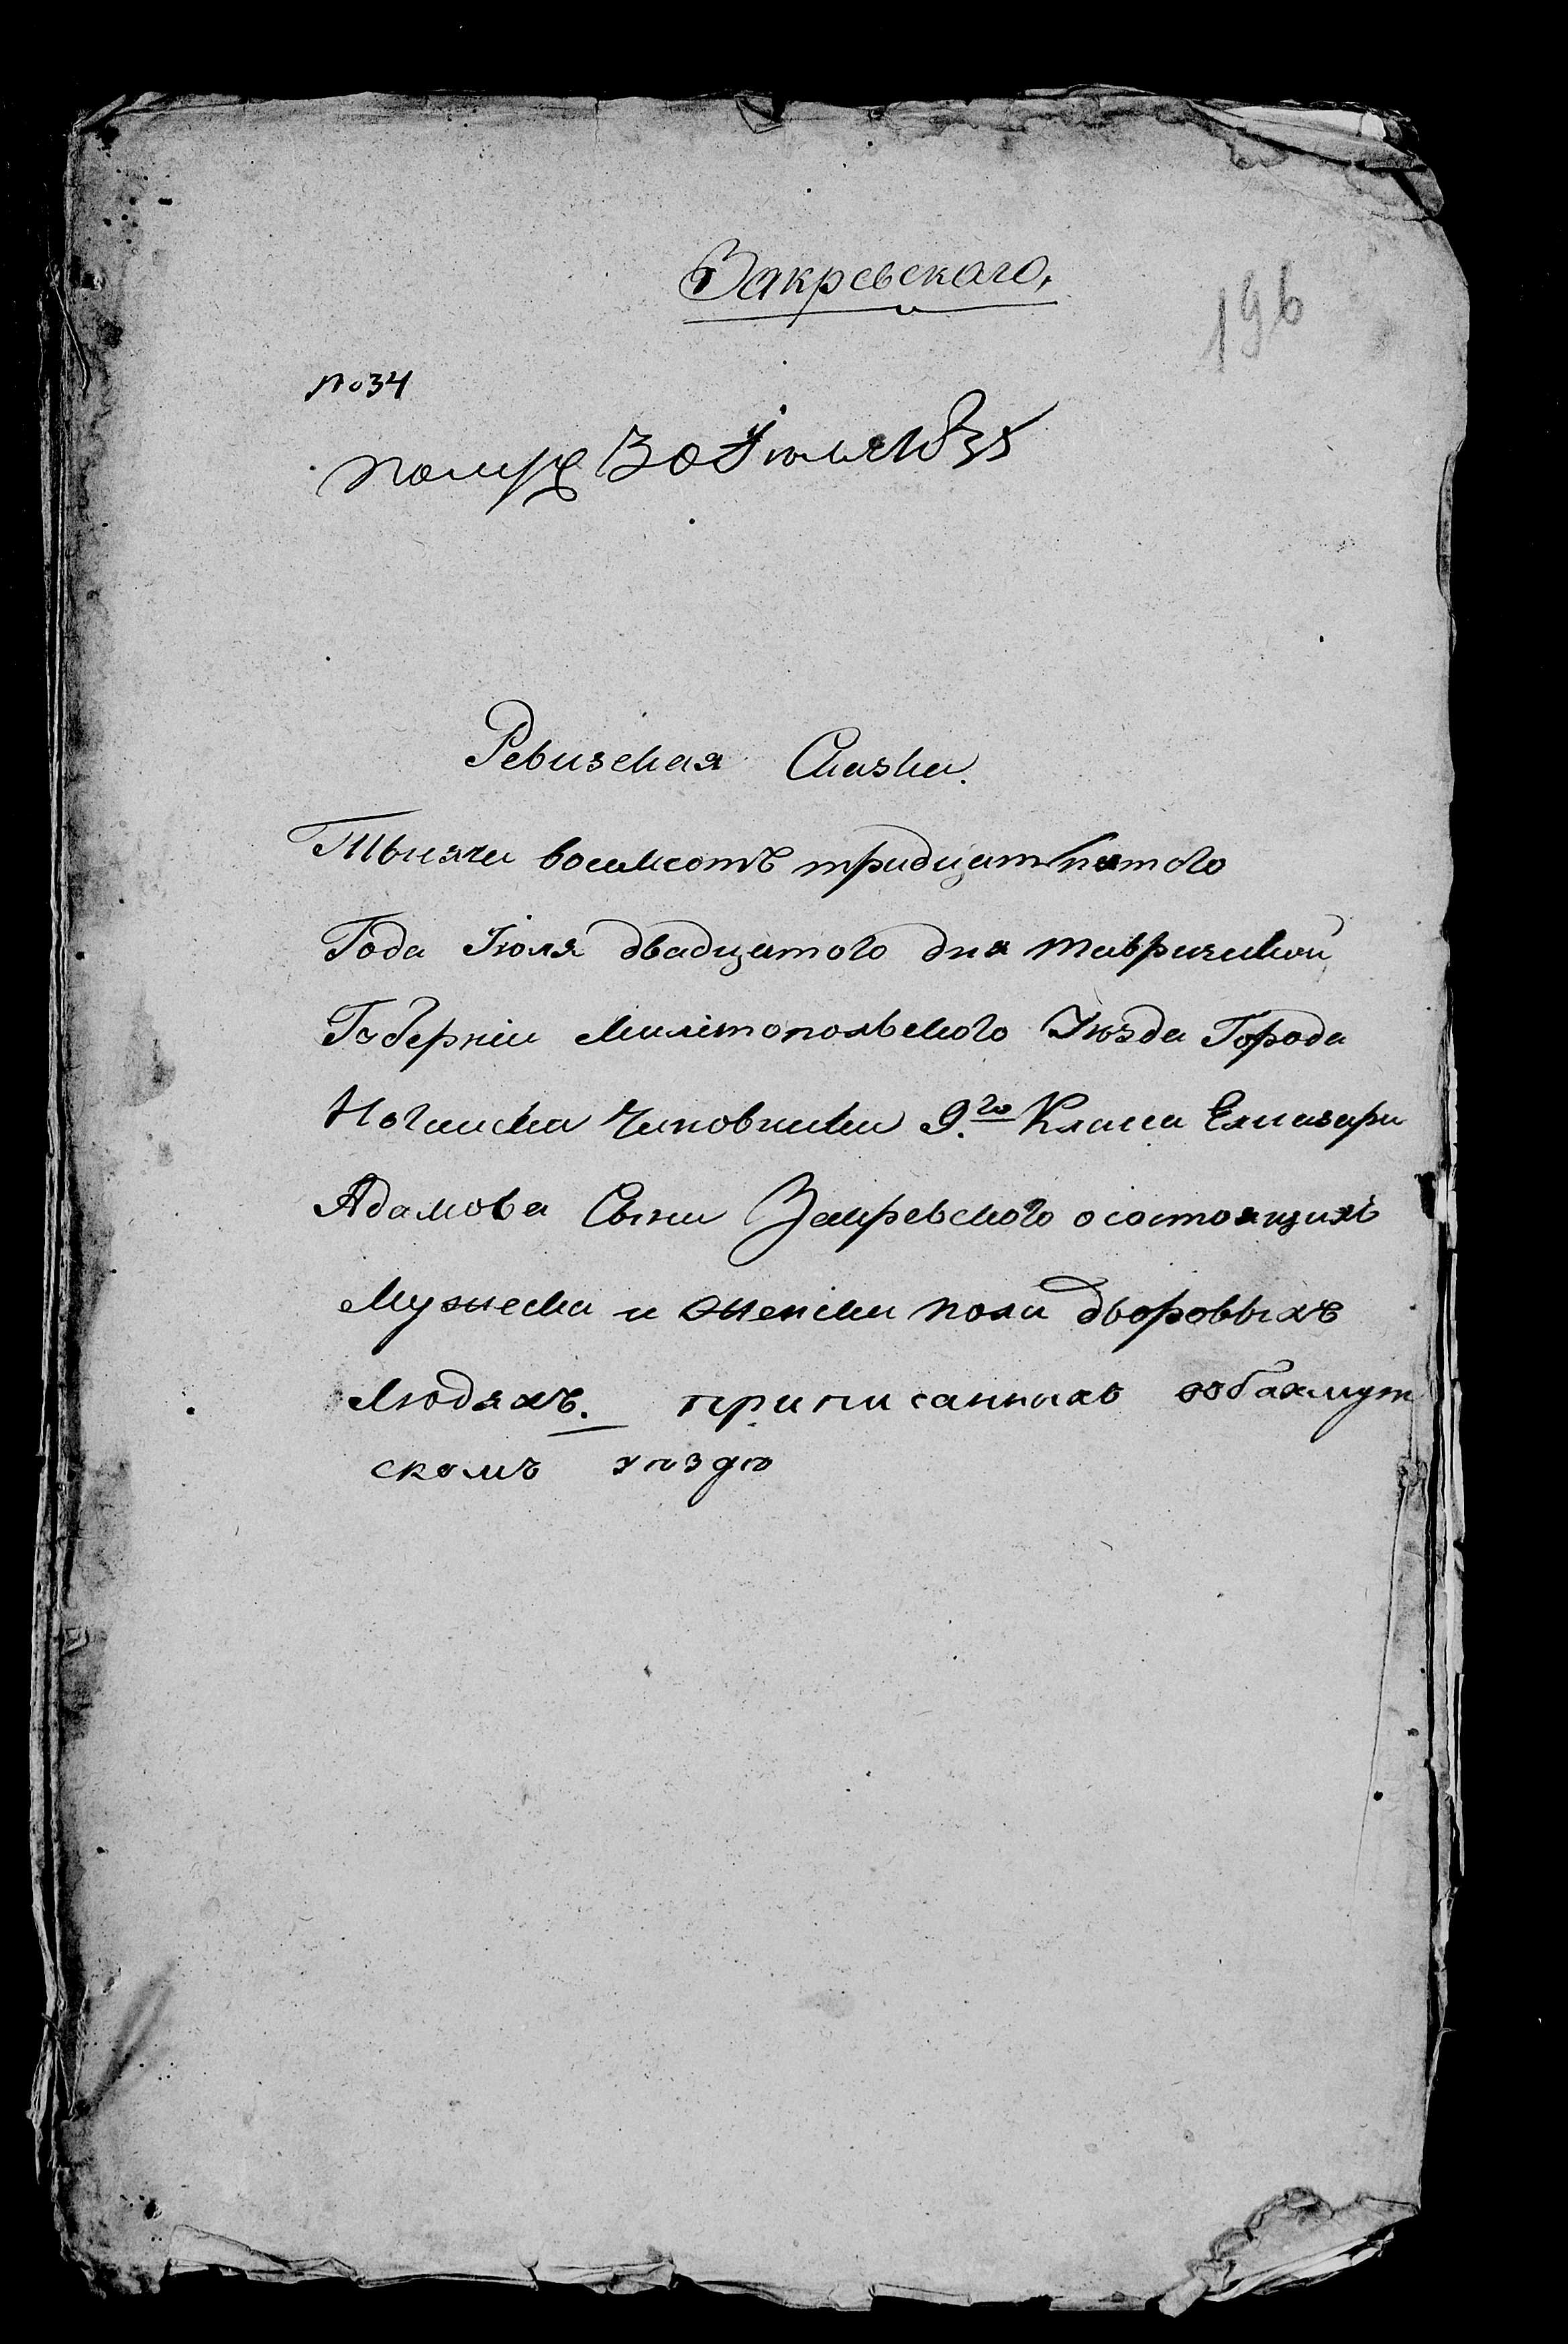 Закревскаго,
196
№ 34
Получ 30 Іюля 1835
Ревизская Сказка.
Тысяча восемсотъ тридцать пятого
Года Іюля двадцатого дня Таврической
Губерніи Мелитопольского Уѣзда Города
Ногайска Чиновника 9.го Класса Елиазара
Адамова Сына Закревского о состоящихъ
Мужеска и женска пола дворовыхъ
Людяхъ. приписанныхъ въ бахмут
скомъ уѣздѣ